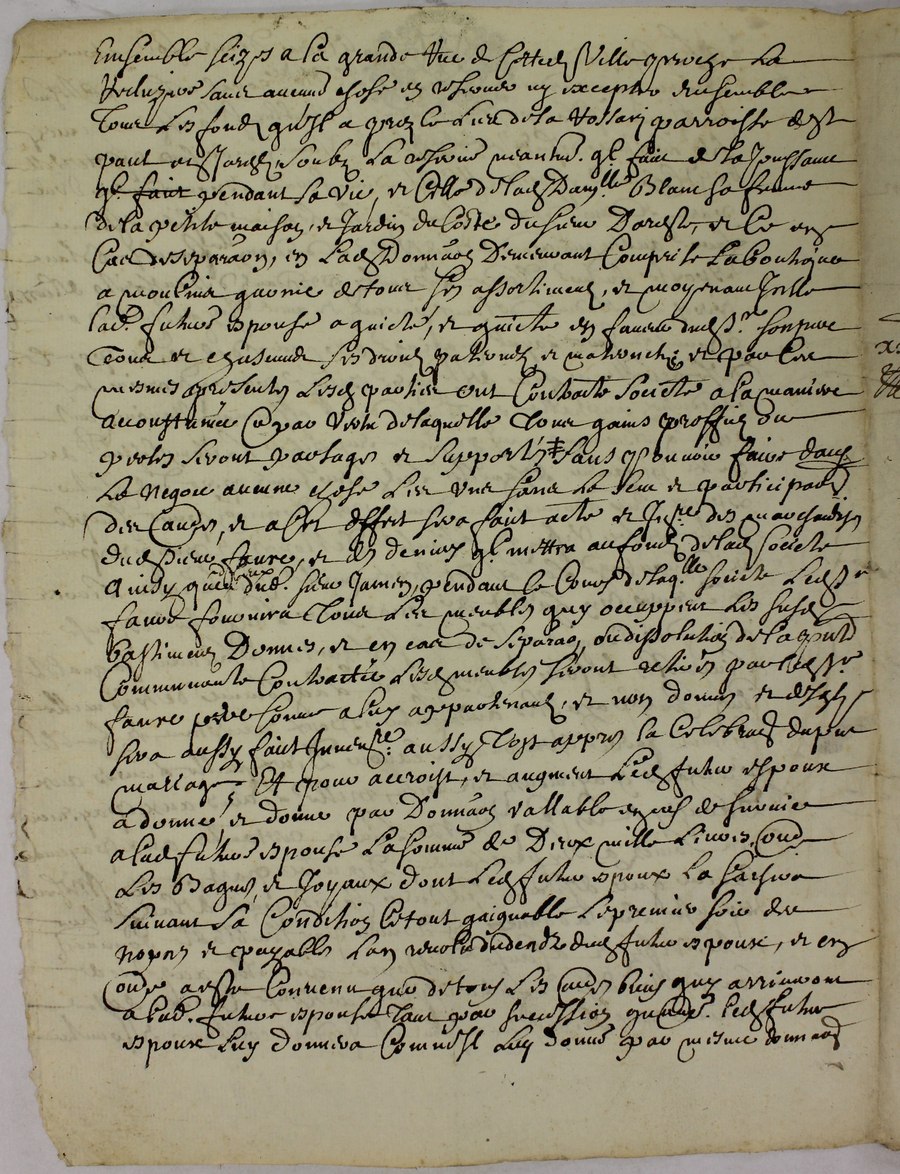 Ensemble seizes a la grande Rue de cetted ville proche la
sans aucune chose en reserver ny excepter Ensemble
Tous les fonds qu'Jl a prez le lieu de la parroisse de St
et Jardz soubz la reserve neantm. ql. fait de la Joussance
pendant sa vie, et Celle de lad Damlle Blanc sa femme
de la petite maison, et Jardin du Costé du sieur Dareste, et Ce en
Cas de separaon, en lad Donnaon Demeurant Comprise la boutique
a moulinee garnie de tous ses assortiments, et moyenant Jcelle
lad. future espouse a quicté, et quicte en faveur dud sr. son pere
Tous et chascuns ses droits paternelz et maternelz et par les
mesmes presentes lesd parties ont Contracté Societe a la maniere
acoustumée par vertu de laquelle Tous gains proffitz ou
pertes seront partages et supportés ‡ sans pouvoir faire dans
le negoce aucune chose les uns sans le sceu et participaon
des autres, et a Cet effect sera fait acte et Jnre des marchandises
dud sieur favre, et des deniers ql. mettra au fonds de lad societe
Ainsy que ceux dud. sieur James, pendant le Cours de laqlle societe ledst sr
favre fournira Tous les meubles quy occuppent les susd
bastimens Donnes, et en cas de separaon, ou dissolution de la pnte
Communaute Contractée lesd meubles seront retirés par led sr
favre pere comme a luy appartenants, et non donnes et desquelz
sera aussy fait Jnvenre. aussy Tost appres la Celebraon du pnt
mariage Et pour accroist, et augment led futur espoux
a donné, et donne par Donnaon vallable en cas de survie
a lad future espouse la somme de Deux mille Livres, outre
les Bagues, et Joyaux dont led futur espoux la saisira
suivant sa Condition le tout gaignable le premier soir des
nopces et payable l'an revolu du decedz dud futur espoux, et en
outre a esté Convenu que de tous les autres biens quy arriveront
a lad. future espouse Tant par succession qu'autremt. led futur
espoux luy donnera Comme Jl luy donne par mesme donnaon